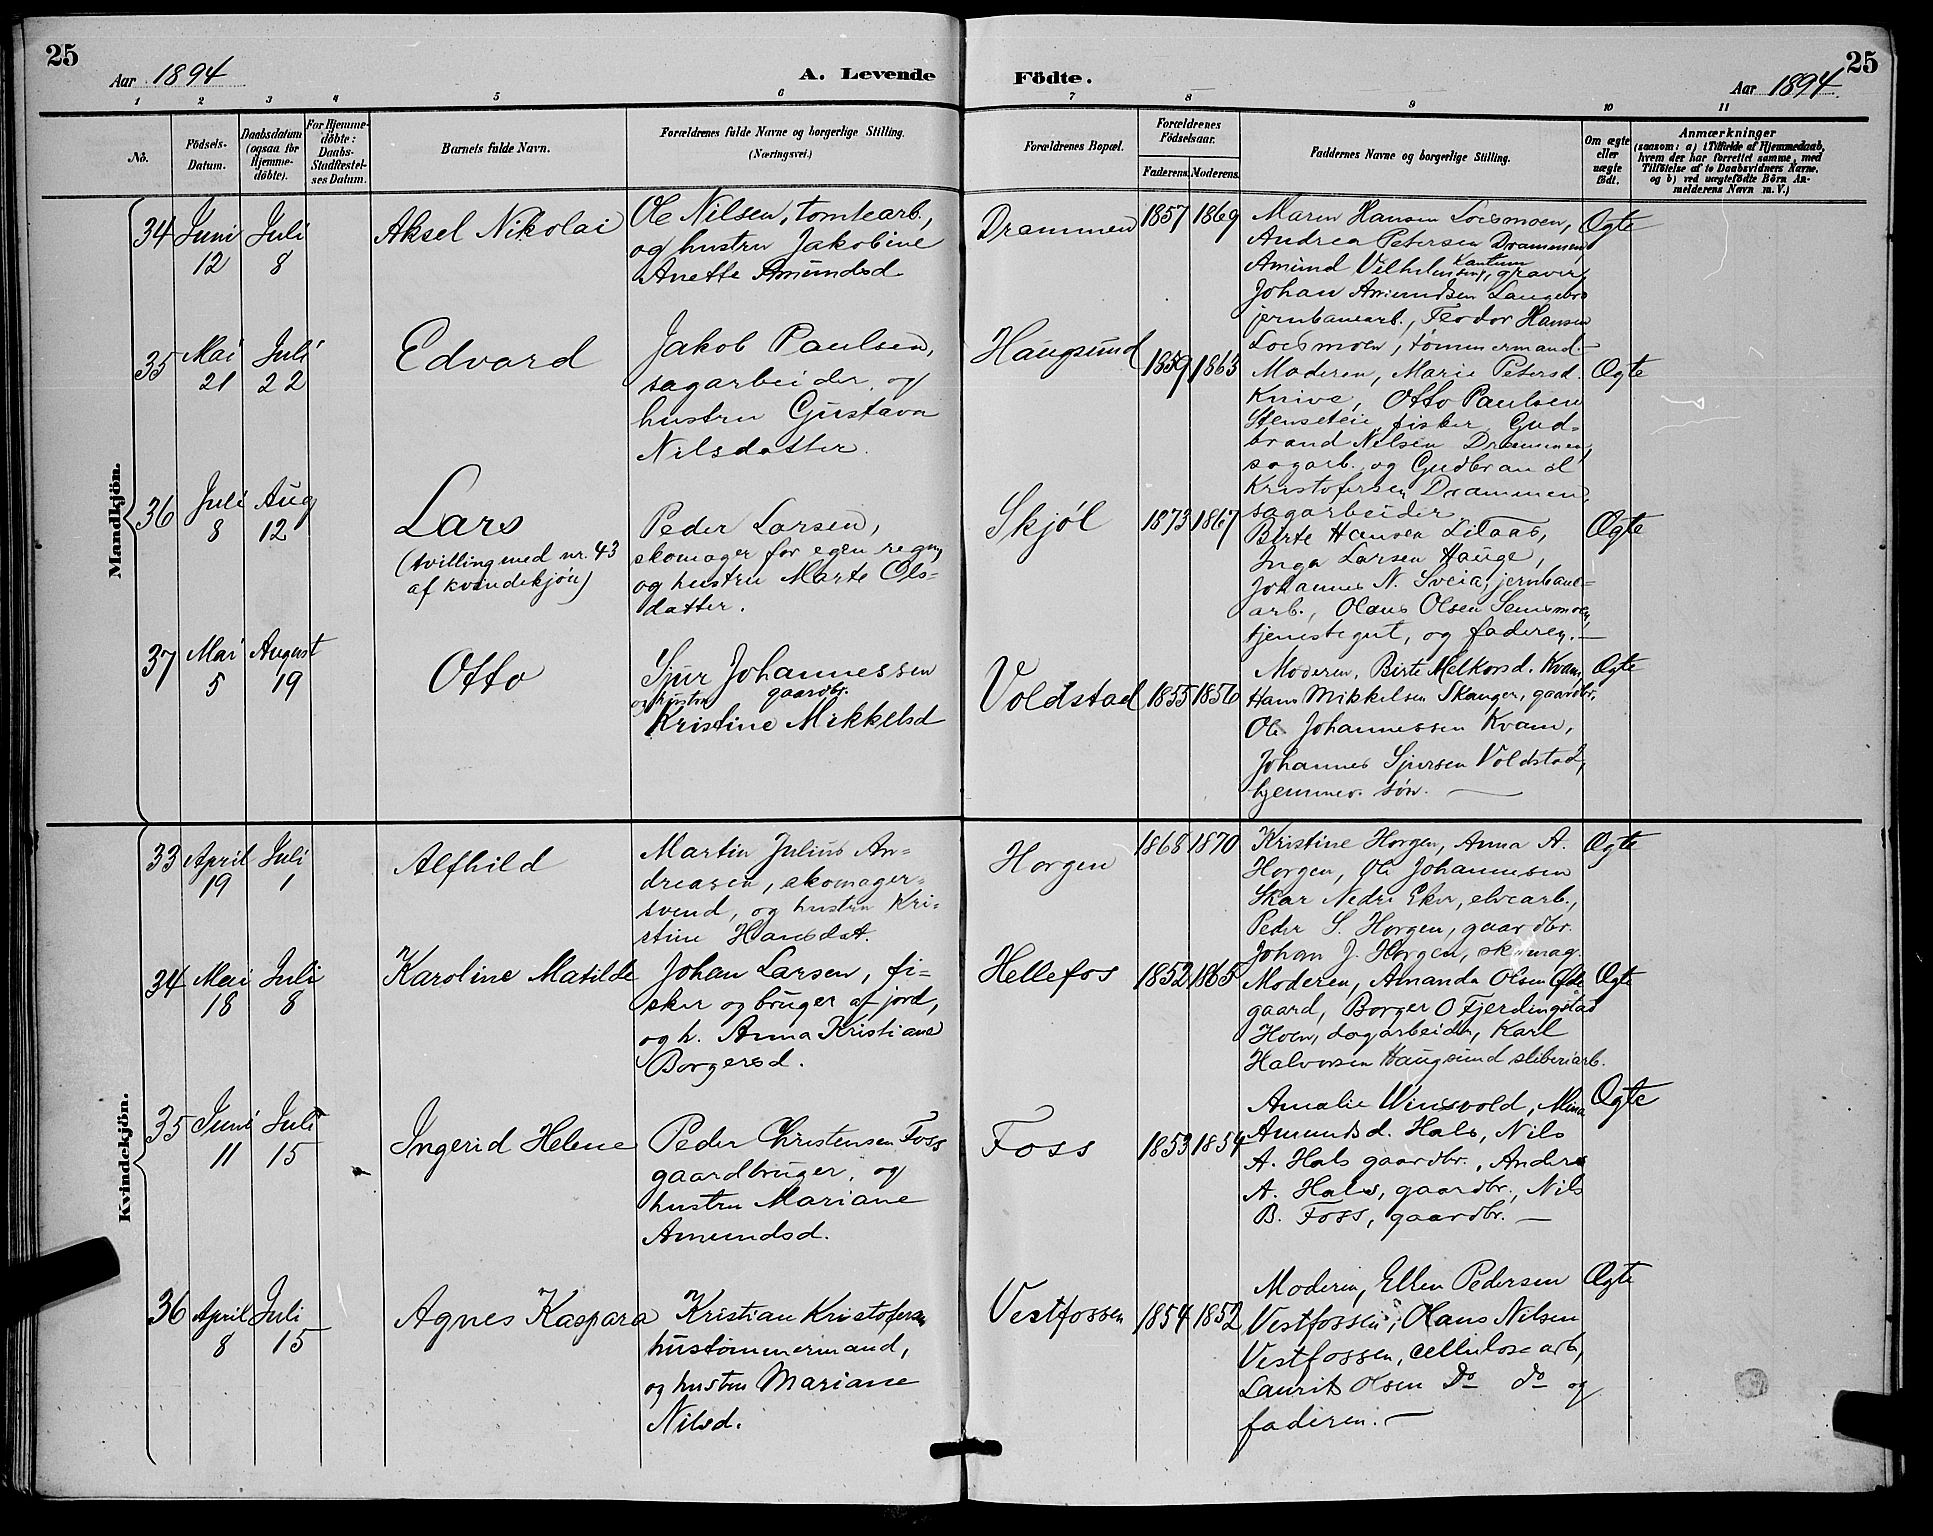 25
Aar 1894
A. Levende
Födte.
Aar 1894.
25
1
2
3
4
5
6
7
8
9
10
11
No.
Födsels-
Datum.
Daabsdatum
(ogsaa for
Hjemme-
döbte).
For Hjemme-
döbte:
Daabs-
Stadfæstel-
ses Datum.
Barnets fulde Navn.
Forældrenes fulde Navne og borgerlige Stilling.
(Næringsvei.)
Forældrenes Bopæl.
Forældrenes
Födselsaar.
Faderens.
Moderens.
Faddernes Navne og borgerlige Stilling.
Om ægte
eller
uægte
födt.
Anmærkninger
(saasom: a) i Tilfælde af Hjemmedaab,
hvem der har forrettet samme, med
Tilföielse af to Daabsvidners Navne,
og b) ved uægtefödte Börn An-
melderens Navn m. V.)
Mandkjön.
34
Juni
12
Juli
8
Aksel Nikolai
Ole Nilsen, tomtearb.,
og hustru Jakobine
Anette Amundsd.
Drammen
1857
1869
Maren Hansen Loesmoen,
Andrea Petersen Drammen,
Amund Vilhelmsen, graver,
Johan Amundsen Langebro
jernbanearb., Teodor Hansen
Loesmoen, tømmermand.
Ægte
35
Mai
21
Juli
22
Edvard
Jakob Paulsen,
sagarbeider, og
hustru Gustava
Nilsdatter.
Haugsund
1859
1863
Moderen, Marie Petersd.
Knive, Otto Paulsen
Stenseteie, fisker, Gud-
brand Nilsen Drammen,
sagarb. og Gudbrand
Kristofersen Drammen,
sagarbeider
Ægte
36
Juli
8
Aug
12
Lars
(tvilling med nr. 43
af kvindekjøn)
Peder Larsen,
skomager for egen regn,
og hustru Marte Ols-
datter.
Skjøl
1873
1867
Birte Hansen Lilaas,
Inga Larsen Hauge,
Johannes N. Sveia, jernbane-
arb., Olaus Olsen Semsmoen,
tjenestegut, og faderen.
Ægte
37
Mai
5
August
19
Otto
Sjur Johannessen
gaardbr.
og hustru
Kristine Mikkelsd
Voldstad
1855
1856
Moderen, Birte Melkorsd. Kvam,
Hans Mikkelsen Skanger, gaardbr.,
Ole Johannessen Kvam,
Johannes Sjursen Voldstad,
hjemmev. søn.
Ægte
Kvindekjön.
33
April
19
Juli
1
Alfhild
Martin Julius An-
dreasen, skomager-
svend, og hustru Kri-
stine Hansdat.
Horgen
1868
1870
Kristine Horgen, Anna A.
Horgen, Ole Johannesen
Skar Nedre Eker, elvearb.,
Peder S. Horgen, gaardbr.
Johan J. Horgen, skomag.
Ægte
34
Mai
18
Juli
8
Karoline Matilde
Johan Larsen, fi-
sker og bruger af jord,
og h. Anna Kristiane
Borgersd.
Hellefos
1852
1865
Moderen, Amanda Olsen Øde-
gaard, Borger O Fjerdingstad
Hoen, dagarbeider, Karl
Halvorsen Haugsund sliberiarb.
Ægte
35
Juni
11
Juli
15
Ingerid Helene
Peder Christensen Foss
gaardbruger, og
hustru Mariane
Amundsd.
Foss
1853
1854
Amalie Winsvold, Mina
Amundsd. Hals, Nils
A. Hals gaardbr., Anders
A. Hals, gaardbr., Nils
B. Foss, gaardbr.
Ægte
36
April
8
Juli
15
Agnes Kaspara
Kristian Kristofersen
hustømmermand,
og hustru Mariane
Nilsd.
Vestfossen
1854
1852
Moderen, Ellen Pedersen
Vestfossen, Olaus Nilsen
Vestfossen, cellulosearb,
Laurits Olsen Do do og
faderen.
Ægte